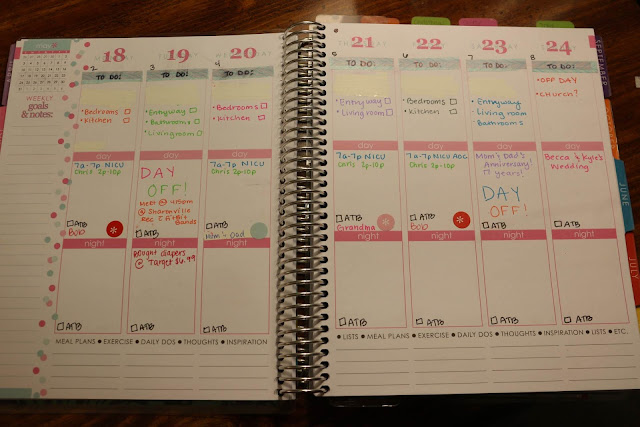 may
WEEKLY
goals
& notes:
18
2
TO DO:
• Bedrooms
• Kitchen
day
7a-7p NICU
Chris 2p-10p
ATB
Bob
night
ATB
19
3
TO DO:
• Entryway
• Bathrooms
• Livingroom
day
DAY
OFF!
Meet @ 415pm
@ Sharonville
Rec
Bands
ATB
night
Bought diapers
@ Target $6.99
ATB
20
4
TO DO:
• Bedrooms
• Kitchen
day
7a-7p NICU
Chris 2p-10p
ATB
Mom & Dad
night
ATB
MEAL PLANS • EXERCISE • DAILY DOS • THOUGHTS • INSPIRATION
21
5
TO DO:
• Entryway
• Livingroom
day
7a-7p NICU
Chris 2p-10p
ATB
Grandma
night
ATB
22
6
TO DO:
• Bedrooms
• Kitchen
day
7a-7p NICU AOG
Chris 2p-10p
ATB
Bob
night
ATB
23
7
TO DO:
• Entryway
• Living room
• Bathrooms
day
Mom & Dad's
Anniversary
17 years!
DAY
OFF!
night
ATB
24
8
• OFF DAY
• Church?
day
Becca & Kyle's
Wedding
ATB
night
ATB
• LISTS • MEAL PLANS • EXERCISE • DAILY DOS • THOUGHTS • INSPIRATION • LISTS • ETC.
JUNE
JULY